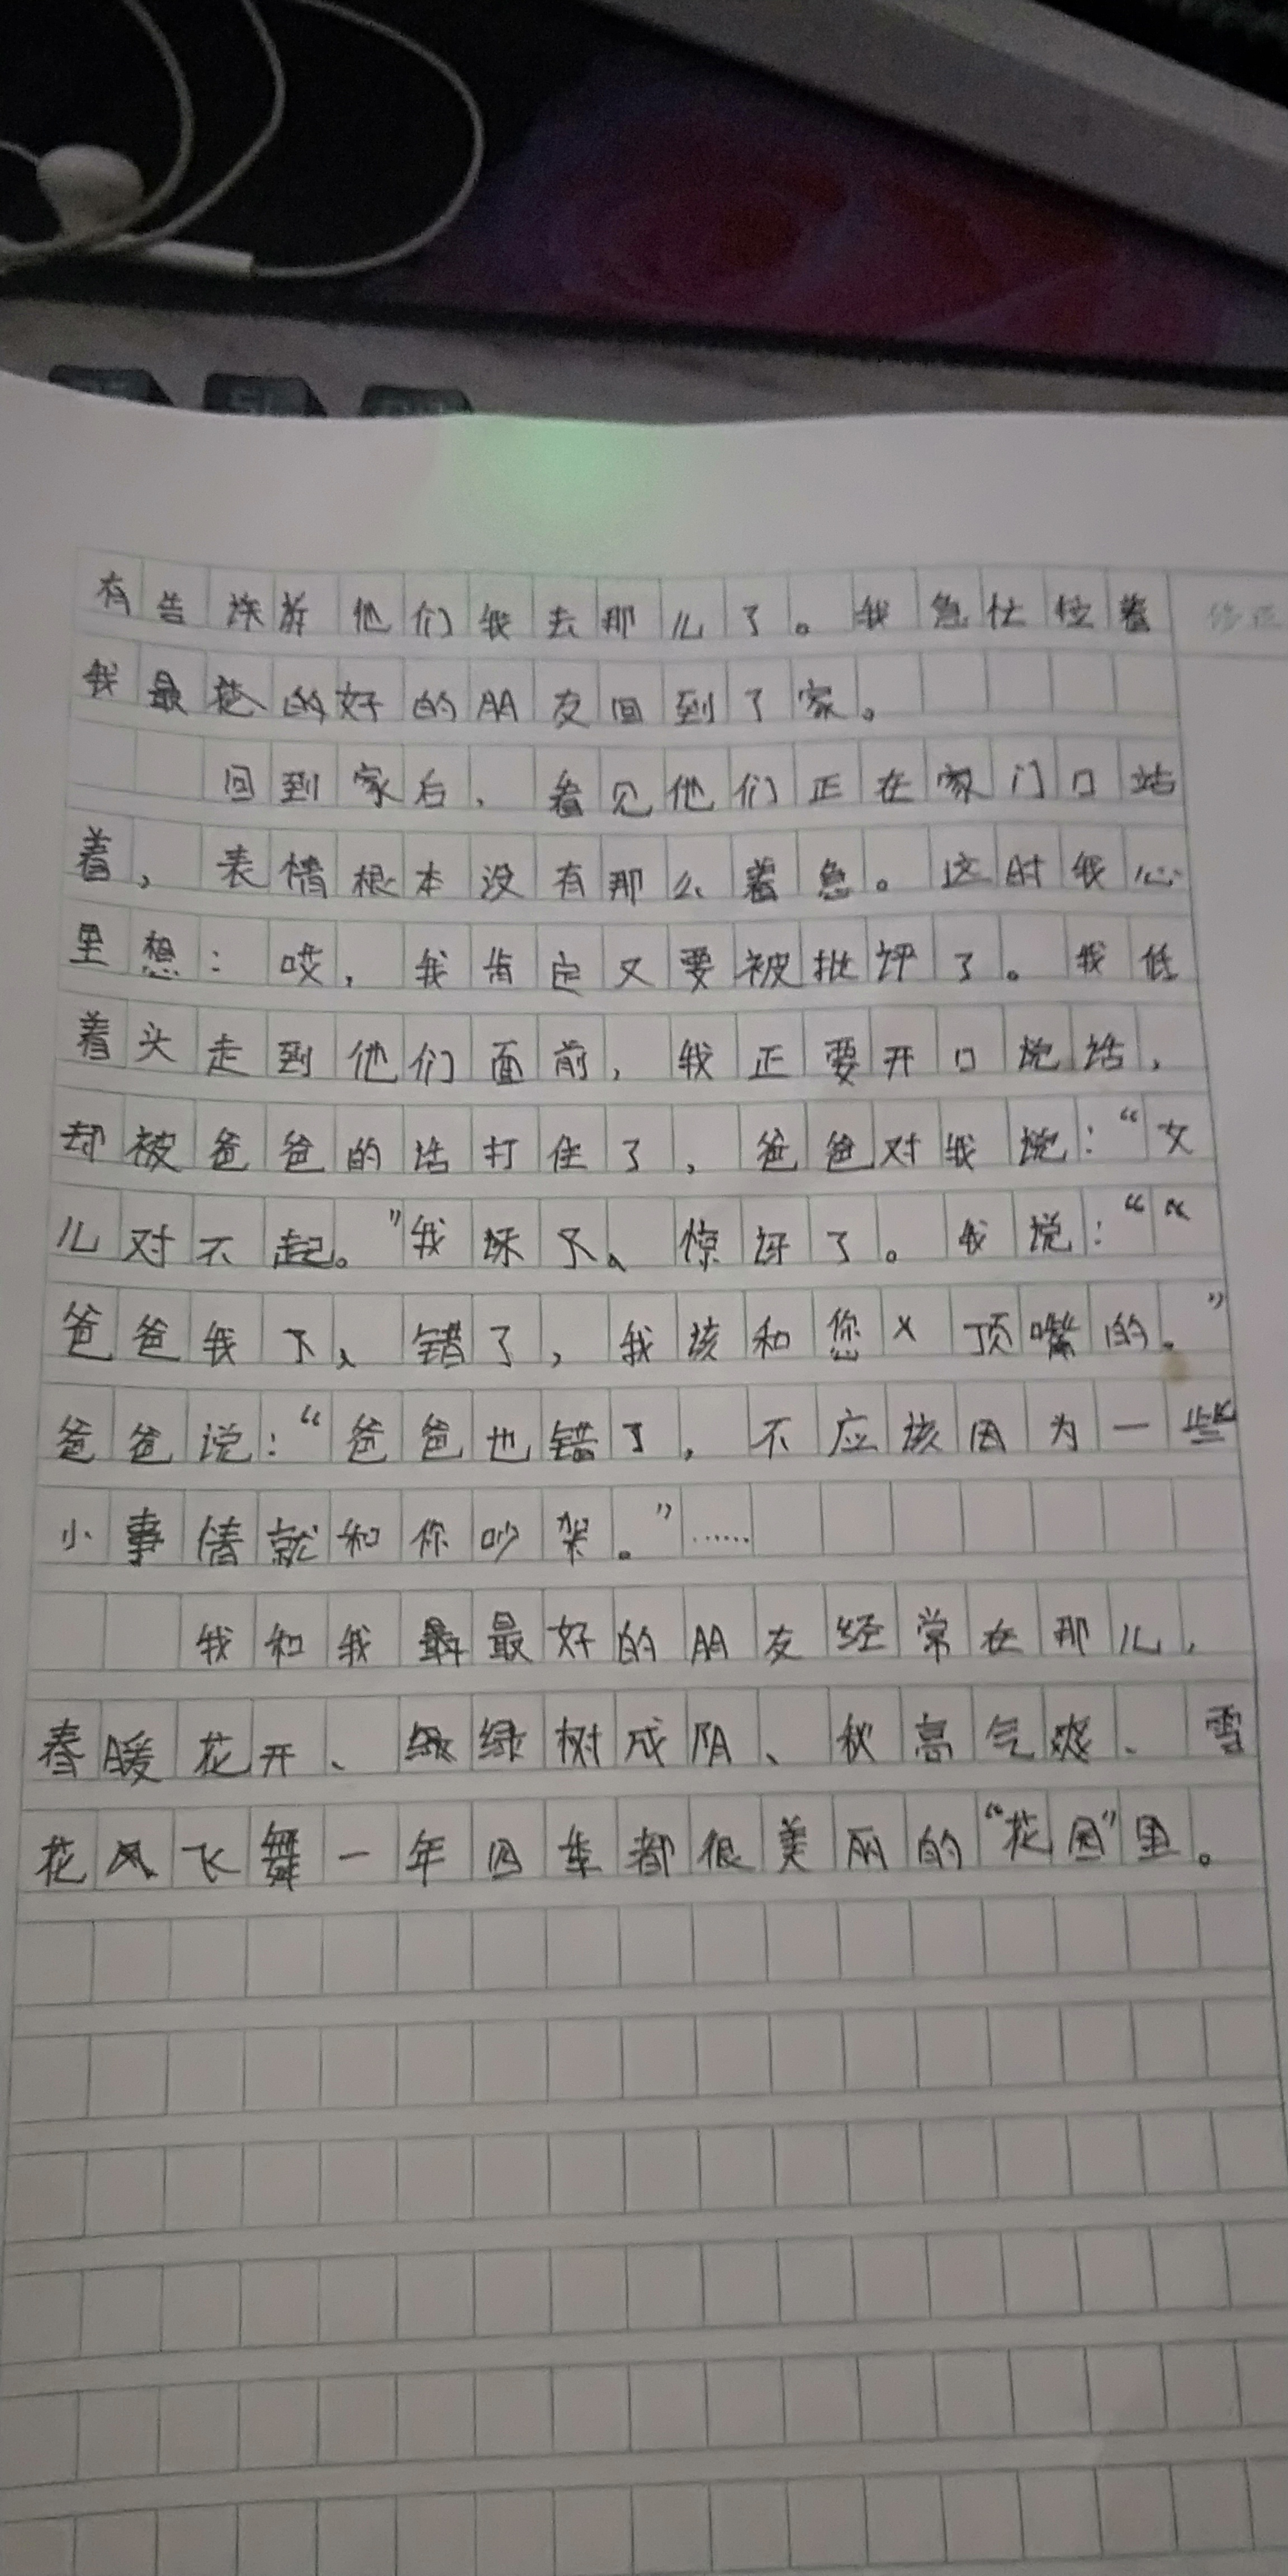 有告诉他们我去那儿了。我急忙拉着
我最好的朋友回到了家。
回到家后，看见他们正在家门口站
着，表情根本没有那么着急。这时我心
里想：哎，我肯定又要被批评了。我低
着头走到他们面前，我正要开口说话，
却被爸爸的话打住了，爸爸对我说：“女
儿对不起。”我惊讶了。我说：“
爸爸我错了，我该和您顶嘴的。”
爸爸说：“爸爸也错了，不应该因为一些
小事情就和你吵架。”……
我和我最好的朋友经常在那儿，
春暖花开、绿树成阴、秋高气爽、雪
花飞舞一年四季都很美丽的“花园”里。